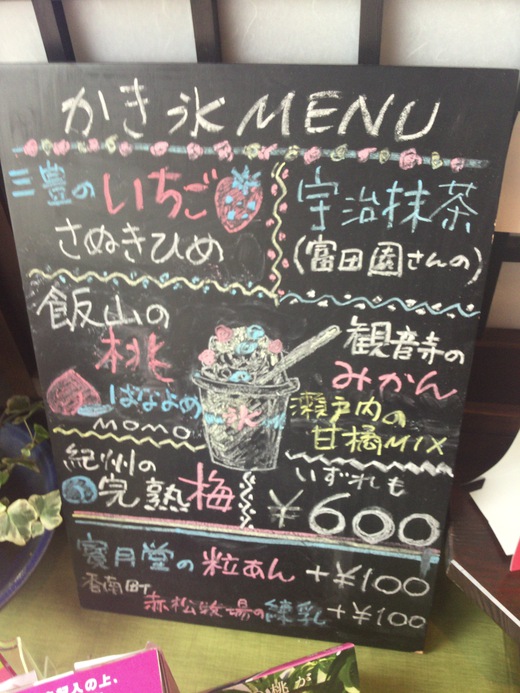 かき氷MENU
三豊の いちご
さぬきひめ
宇治抹茶
(富田園さんの)
飯山の
桃
はなよめ
MOMO
氷
観音寺の
みかん
瀬戸内の
甘橘MIX
紀州の
完熟梅
いずれも
¥600
寳月堂の粒あん +¥100
香南町
赤松牧場の練乳 +¥100